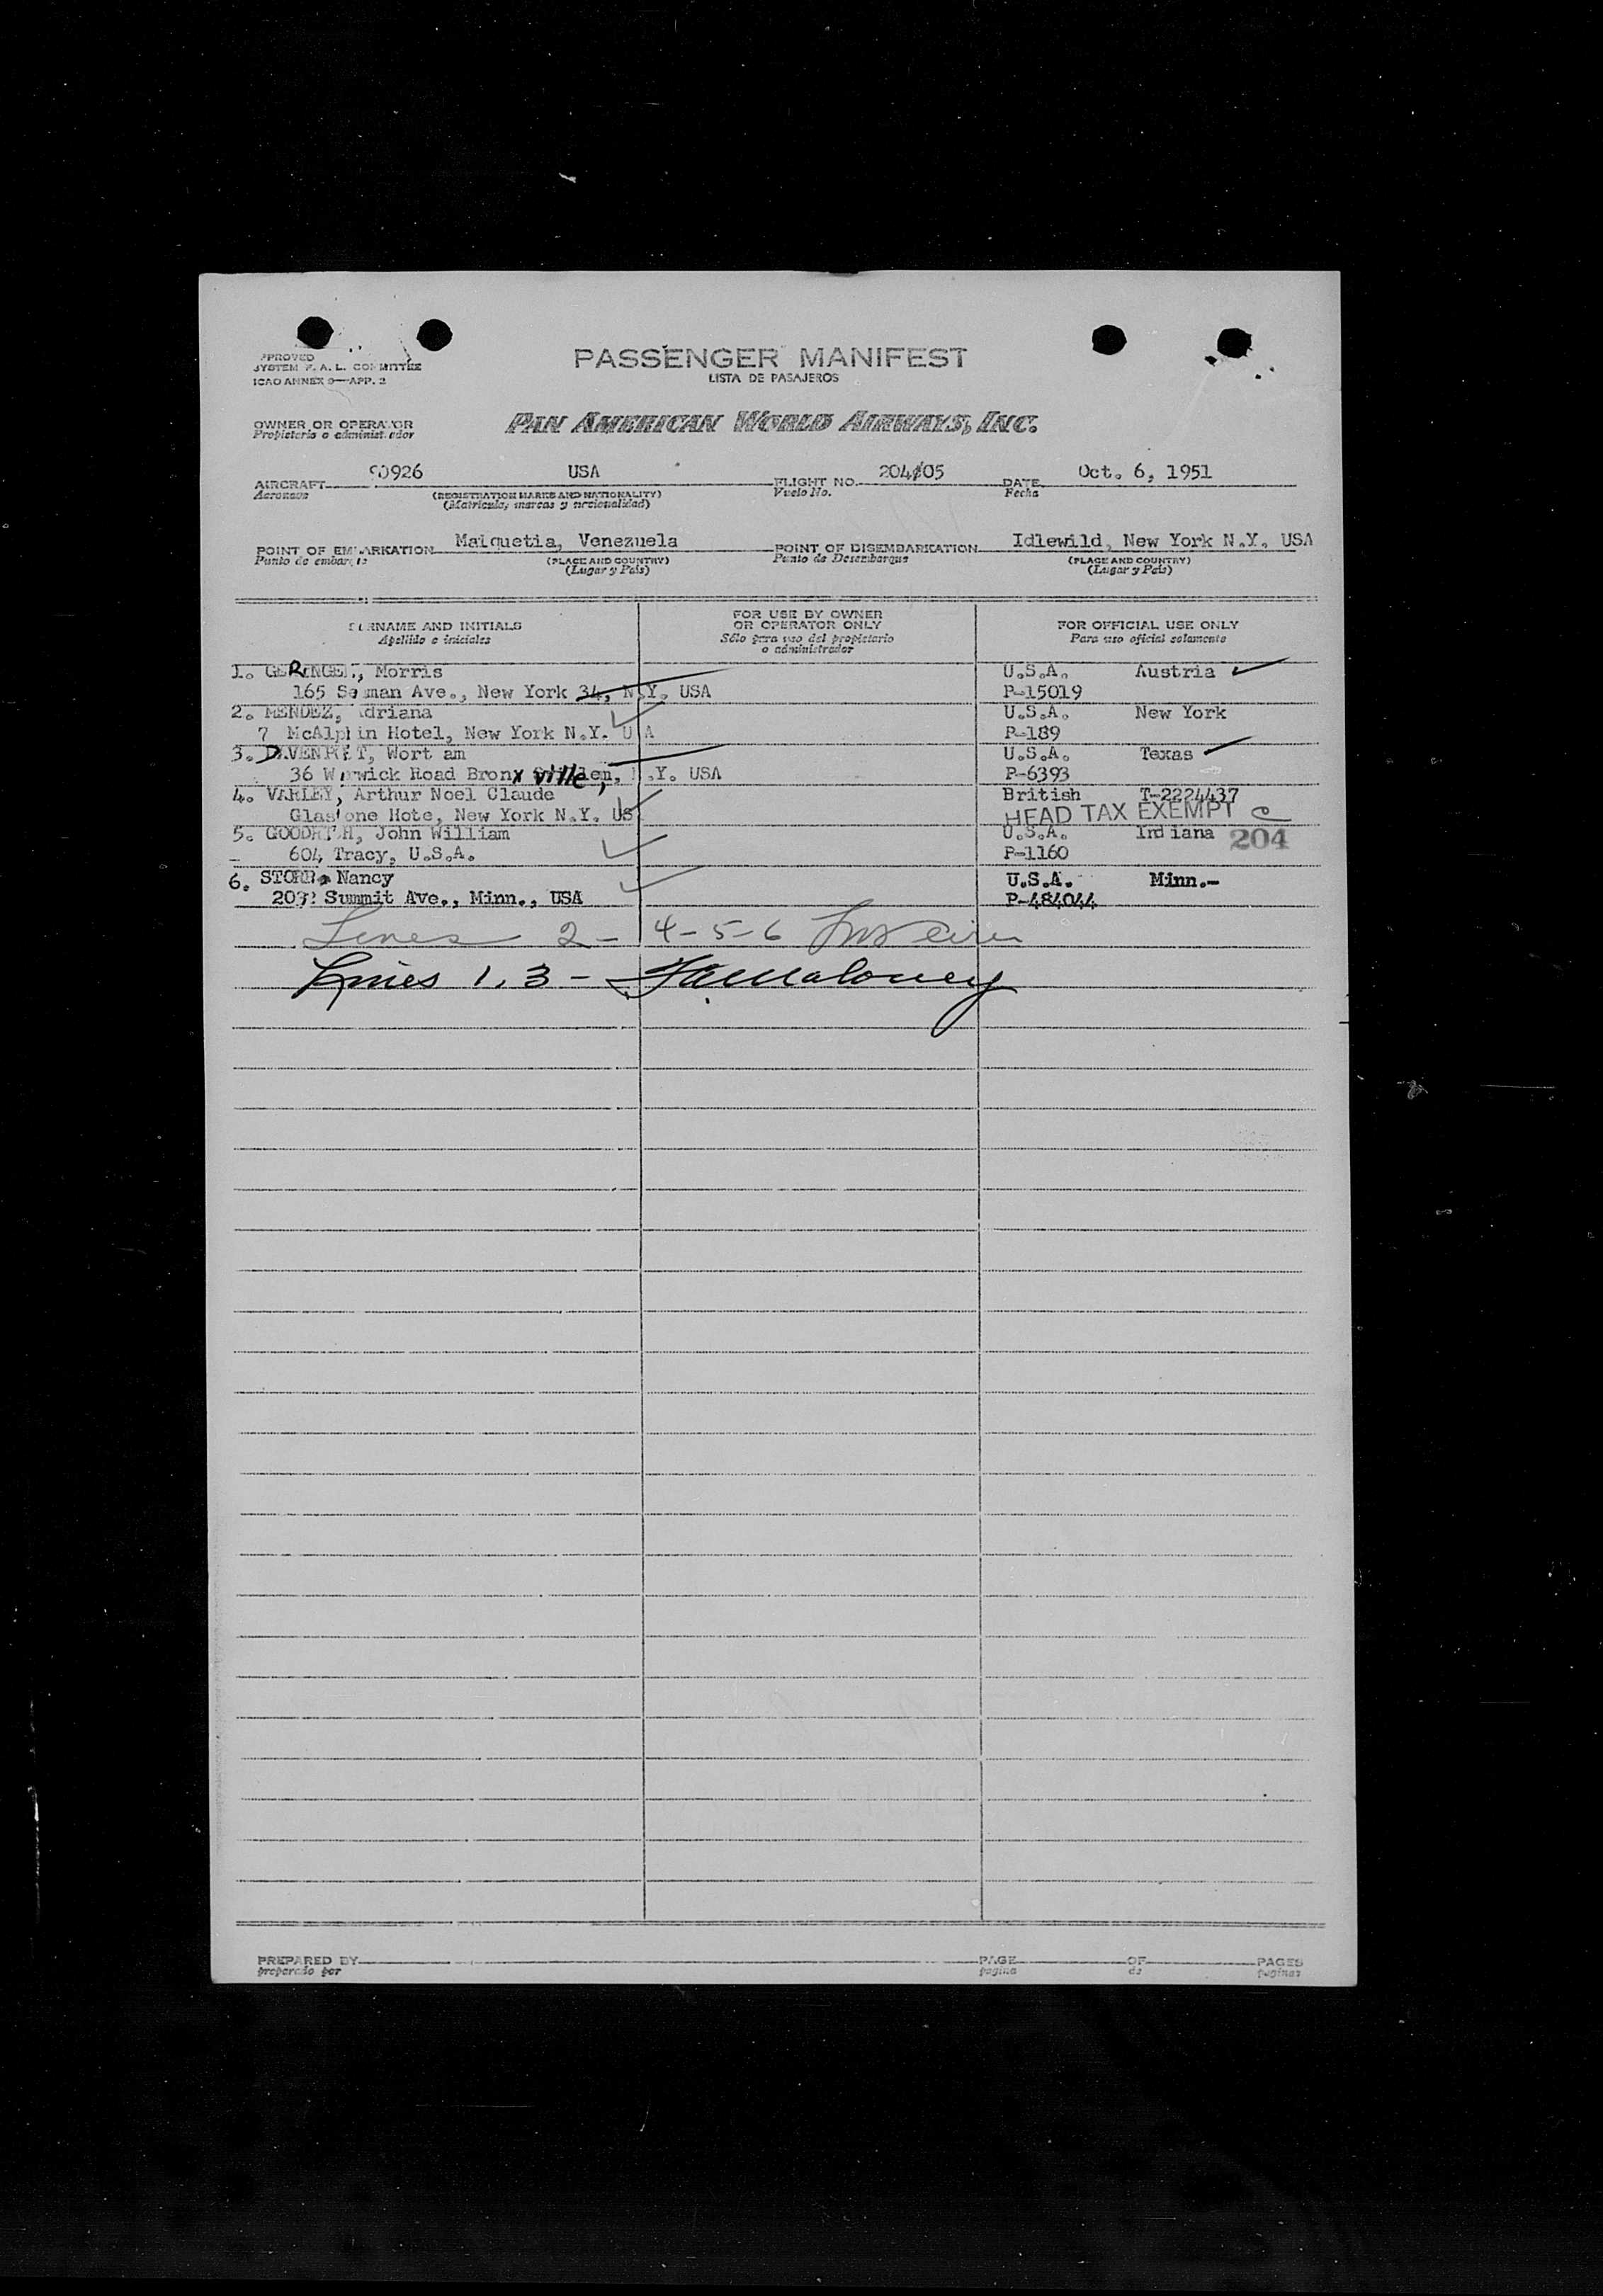 PASSENGER MANIFEST
LISTA DE PASAJEROS
SYSTEM F. A. L. COMMITTEE
ICAO ANNEX 9—APP. 2
OWNER OR OPERATOR
Propietario o administrador
PAN AMERICAN WORLD AIRWAYS, INC.
AIRCRAFT 90926 USA FLIGHT NO. 204/05 DATE Oct. 6, 1951
Aeronave (REGISTRATION MARKS AND NATIONALITY) Vuelo No. Fecha
(Matricula, marcas y nacionalidad)
POINT OF EMBARKATION Maiquetia, Venezuela POINT OF DISEMBARKATION Idlewild, New York N.Y. USA
Punto de embarque (PLACE AND COUNTRY) Punto de Desembarque (PLACE AND COUNTRY)
(Lugar y País) (Lugar y País)
SURNAME AND INITIALS FOR USE BY OWNER OR OPERATOR ONLY FOR OFFICIAL USE ONLY
Apellido e iniciales Sólo para uso del propietario o administrador Para uso oficial solamente
1. Morris U.S.A. Austria
165 Seaman Ave., New York 34, N.Y. USA P-15019
2. MENDEZ, Adriana U.S.A. New York
7 McAlpin Hotel, New York N.Y. USA P-189
3. DAVENPORT, U.S.A. Texas
36 Warwick Road Bronxville, N.Y. USA P-6393
4. VARLEY, Arthur Noel Claude British T-2224437
Hote, New York N.Y. US HEAD TAX EXEMPT
5. GOODRICH, John William U.S.A. Indiana 204
604 Tracy, U.S.A. P-1160
6. STORR, Nancy U.S.A. Minn.-
Summit Ave., Minn., USA P-484044
Lines 2- 4-5-6
Lines 1, 3 - Maloney
PREPARED BY PAGE OF PAGES
preparado por pagina de paginas